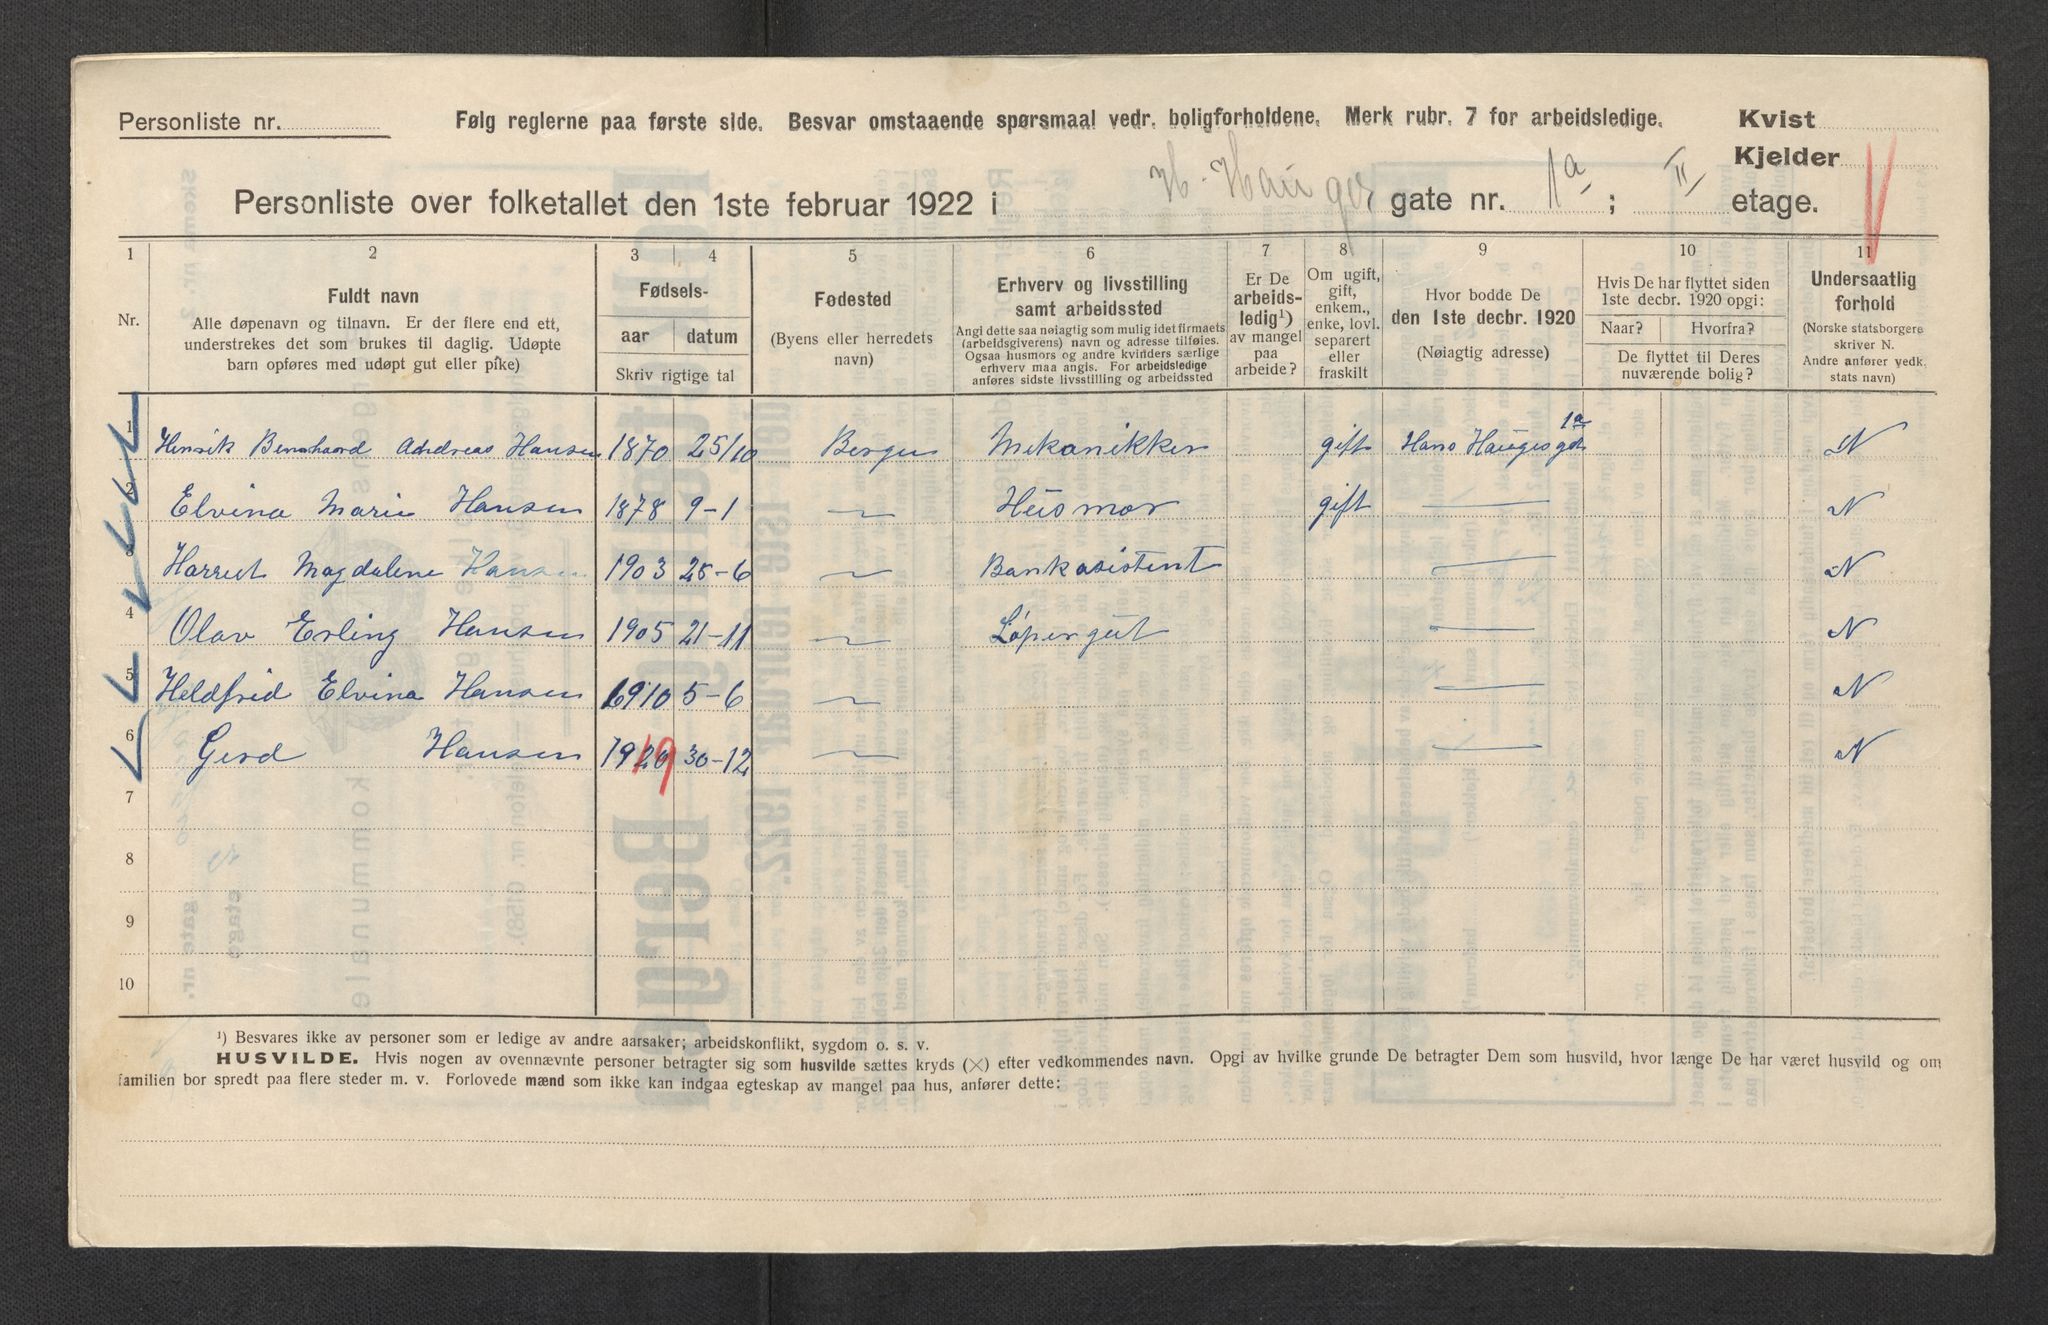 Personliste nr. Følg reglerne paa første side. Besvar omstaaende spørsmaal vedr. boligforholdene. Merk rubr. 7 for arbeidsledige. Kvist
Kjelder
Personliste over folketallet den 1ste februar 1922 i H. Hauges gate nr. 1a ; II etage.
1 2 3 4 5 6 7 8 9 10 11
Nr.
Fuldt navn
Alle døpenavn og tilnavn. Er der flere end ett,
understrekes det som brukes til daglig. Udøpte
barn opføres med udøpt gut eller pike)
Fødsels-
aar datum
Skriv rigtige tal
Fødested
(Byens eller herredets
navn)
Erhverv og livsstilling
samt arbeidssted
Angi dette saa nøiagtig som mulig idet firmaets
(arbeidsgiverens) navn og adresse tilføies.
Ogsaa husmors og andre kvinders særlige
erhverv maa angis. For arbeidsledige
anføres sidste livsstilling og arbeidssted
Er De
arbeids-
ledig¹)
av mangel
paa
arbeide?
Om ugift,
gift,
enkem.,
enke, lovl.
separert
eller
fraskilt
Hvor bodde De
den 1ste decbr. 1920
(Nøiagtig adresse)
Hvis De har flyttet siden
1ste decbr. 1920 opgi:
Naar? Hvorfra?
De flyttet til Deres
nuværende bolig?
Undersaatlig
forhold
(Norske statsborgere
skriver N.
Andre anfører vedk.
stats navn)
1 Henrik Bernhaard Andreas Hansen 1870 25/10 Bergen Mekanikker gift Hans Hauges gd 1a N
2 Elvina Marie Hansen 1878 9-1 — Husmor gift — N
3 Harriet Magdalene Hansen 1903 25-6 — Bankasistent — N
4 Olav Erling Hansen 1905 21-11 — Løpergut — N
5 Heldfrid Elvina Hansen 1910 5-6 — — N
6 Gerd Hansen 1920 19 30-12 — — N
7
8
9
10
¹) Besvares ikke av personer som er ledige av andre aarsaker; arbeidskonflikt, sygdom o. s. v.
HUSVILDE. Hvis nogen av ovennævnte personer betragter sig som husvilde sættes kryds (×) efter vedkommendes navn. Opgi av hvilke grunde De betragter Dem som husvild, hvor længe De har været husvild og om
familien bor spredt paa flere steder m. v. Forlovede mænd som ikke kan indgaa egteskap av mangel paa hus, anfører dette: